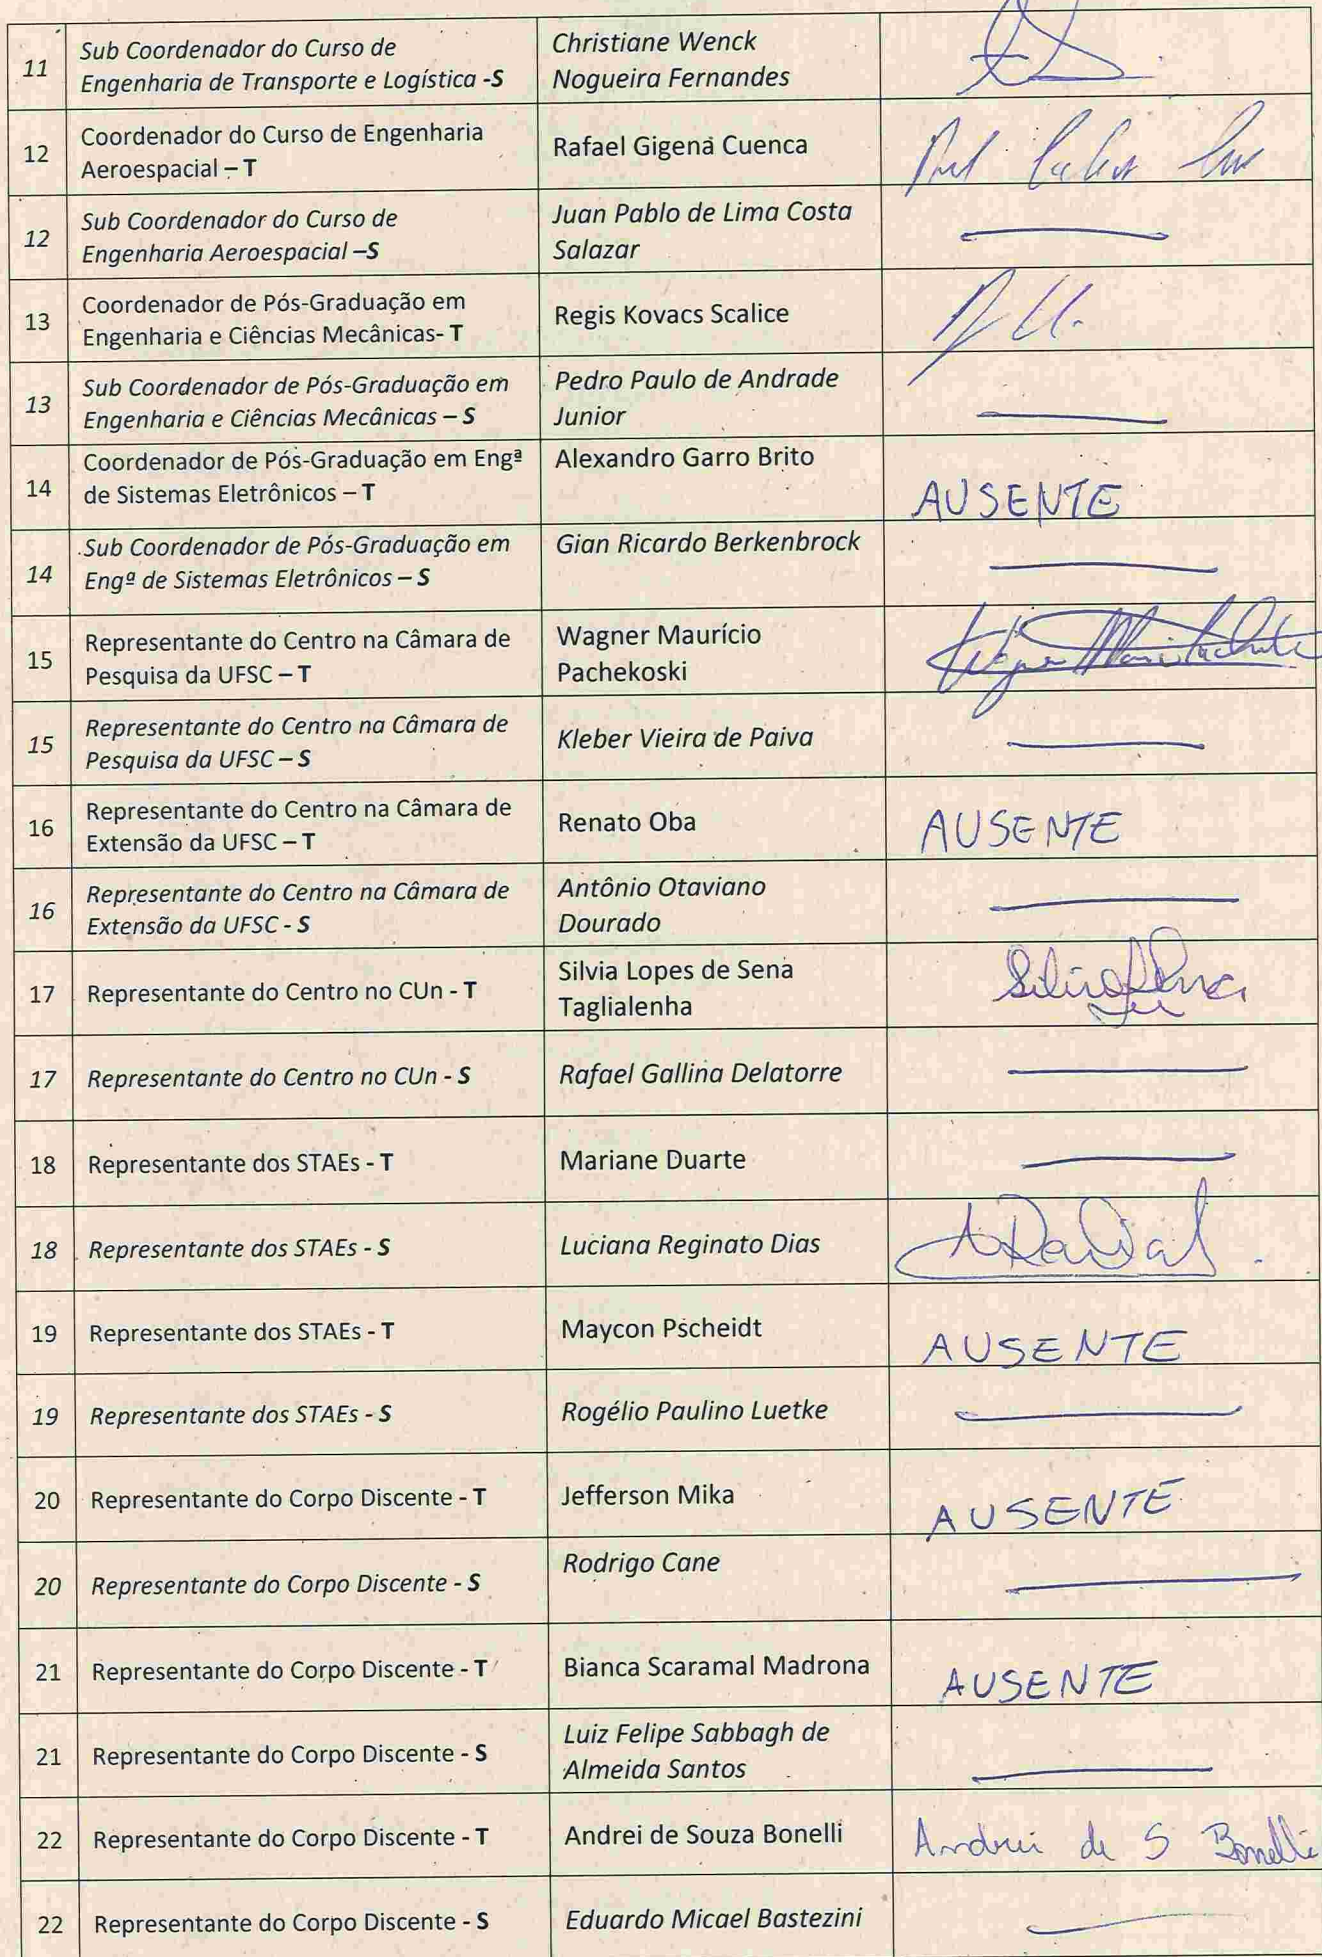 11
Sub Coordenador do Curso de
Engenharia de Transporte e Logística -S
Christiane Wenck
Nogueira Fernandes
12
Coordenador do Curso de Engenharia
Aeroespacial – T
Rafael Gigena Cuenca
12
Sub Coordenador do Curso de
Engenharia Aeroespacial –S
Juan Pablo de Lima Costa
Salazar
13
Coordenador de Pós-Graduação em
Engenharia e Ciências Mecânicas- T
Regis Kovacs Scalice
13
Sub Coordenador de Pós-Graduação em
Engenharia e Ciências Mecânicas – S
Pedro Paulo de Andrade
Junior
14
Coordenador de Pós-Graduação em Engª
de Sistemas Eletrônicos – T
Alexandro Garro Brito
AUSENTE
14
Sub Coordenador de Pós-Graduação em
Engª de Sistemas Eletrônicos – S
Gian Ricardo Berkenbrock
15
Representante do Centro na Câmara de
Pesquisa da UFSC – T
Wagner Maurício
Pachekoski
15
Representante do Centro na Câmara de
Pesquisa da UFSC – S
Kleber Vieira de Paiva
16
Representante do Centro na Câmara de
Extensão da UFSC – T
Renato Oba
AUSENTE
16
Representante do Centro na Câmara de
Extensão da UFSC - S
Antônio Otaviano
Dourado
17
Representante do Centro no CUn - T
Silvia Lopes de Sena
Taglialenha
17
Representante do Centro no CUn - S
Rafael Gallina Delatorre
18
Representante dos STAEs - T
Mariane Duarte
18
Representante dos STAEs - S
Luciana Reginato Dias
19
Representante dos STAEs - T
Maycon Pscheidt
AUSENTE
19
Representante dos STAEs - S
Rogélio Paulino Luetke
20
Representante do Corpo Discente - T
Jefferson Mika
AUSENTE
20
Representante do Corpo Discente - S
Rodrigo Cane
21
Representante do Corpo Discente - T
Bianca Scaramal Madrona
AUSENTE
21
Representante do Corpo Discente - S
Luiz Felipe Sabbagh de
Almeida Santos
22
Representante do Corpo Discente - T
Andrei de Souza Bonelli
Andrei de S Bonelli
22
Representante do Corpo Discente - S
Eduardo Micael Bastezini